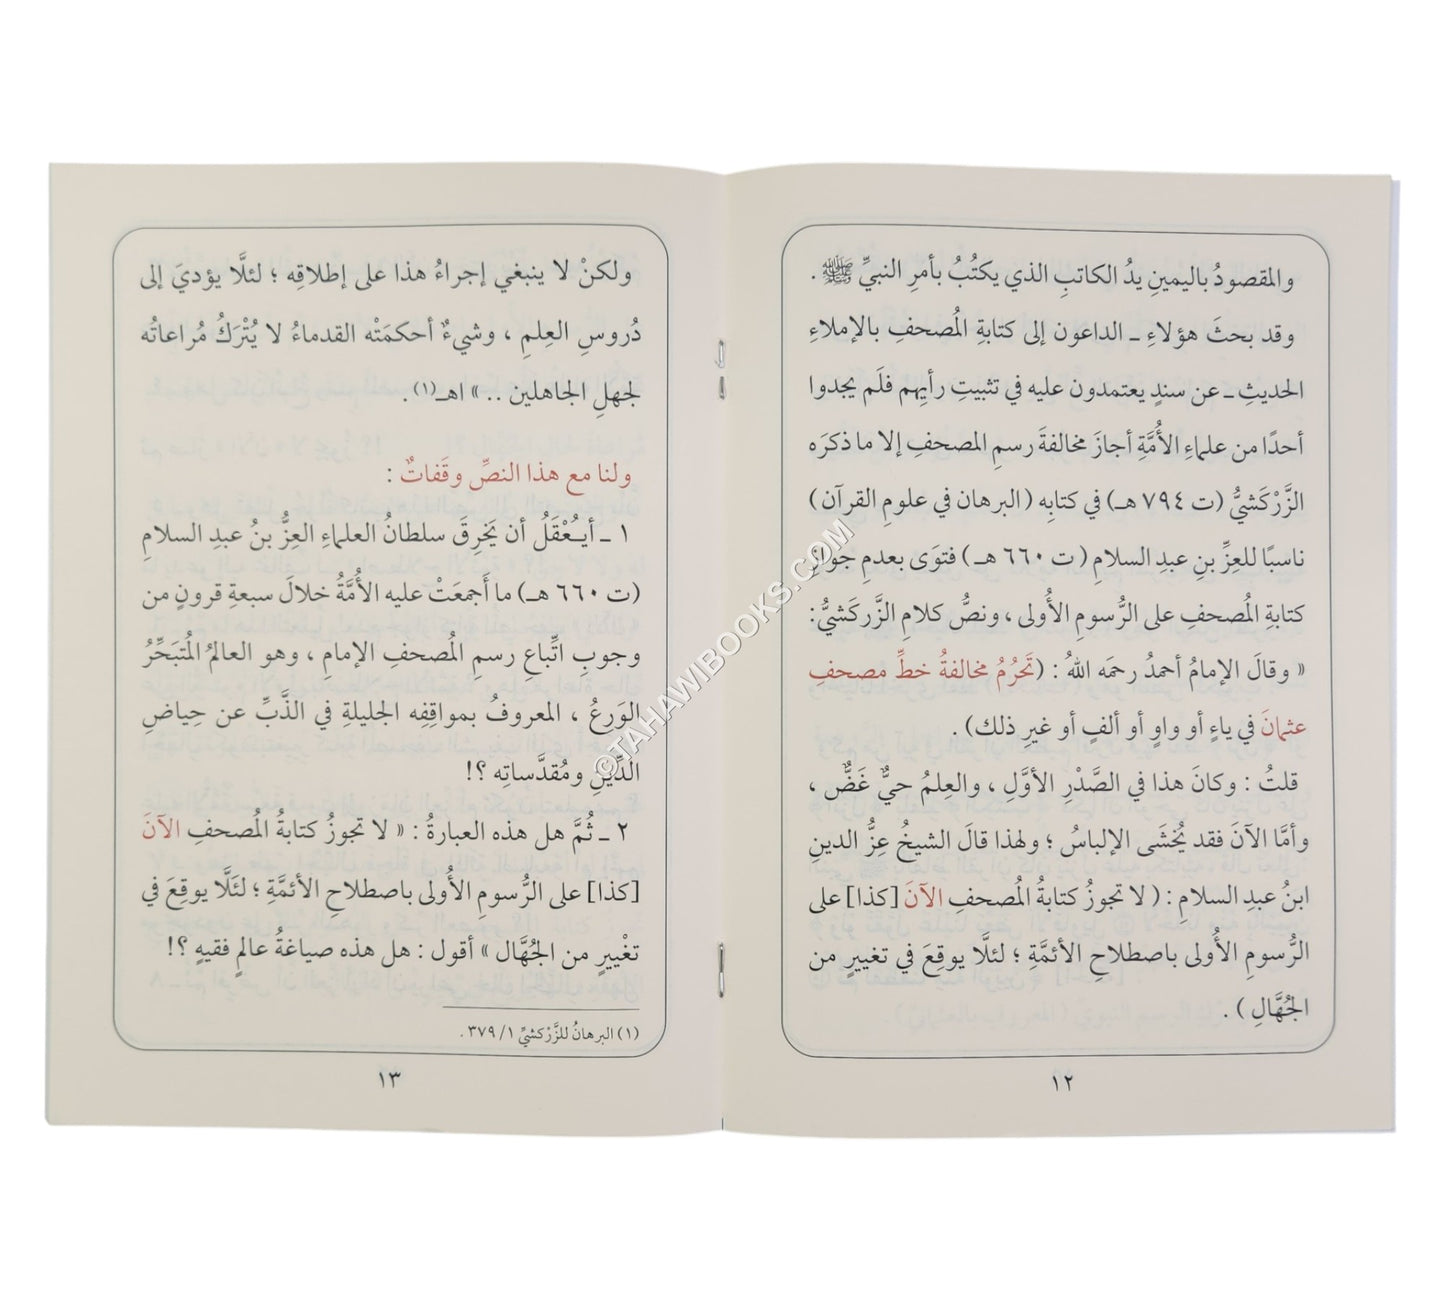 والمقصودُ باليمينِ يدُ الكاتبِ الذي يكتُبُ بأمرِ النبيِّ ﷺ .
وقد بحثَ هؤلاءِ ـ الداعون إلى كتابةِ المُصحفِ بالإملاءِ
الحديثِ ـ عن سندٍ يعتمدون عليه في تثبيتِ رأيِهم فلَم يجدوا
أحدًا من علماءِ الأُمَّةِ أجازَ مخالفةَ رسمِ المصحفِ إلا ما ذكرَه
الزَّرْكَشيُّ (ت ٧٩٤ هـ) في كتابِه (البرهان في علومِ القرآن)
ناسبًا للعِزِّ بنِ عبدِ السلامِ (ت ٦٦٠ هـ) فتوَى بعدمِ جوازِ
كتابةِ المُصحفِ على الرُّسومِ الأُولى ، ونصُّ كلامِ الزَّركشيُّ:
« وقالَ الإمامُ أحمدُ رحمَه اللهُ : (تَحرُمُ مخالفةُ خطِّ مصحفِ
عثمانَ في ياءٍ أو واوٍ أو ألفٍ أو غيرِ ذلك) .
قلتُ : وكانَ هذا في الصَّدْرِ الأوَّلِ ، والعِلمُ حيٌّ غَضٌّ ،
وأمَّا الآنَ فقد يُخشَى الإلباسُ ؛ ولهذا قالَ الشيخُ عِزُّ الدينِ
ابنُ عبدِ السلامِ : ( لا تجوزُ كتابةُ المُصحفِ الآنَ [كذا] على
الرُّسومِ الأُولى باصطلاحِ الأئمَّةِ ؛ لئلَّا يوقِعَ في تغييرٍ من
الجُهَّالِ ) .
١٢
ولكنْ لا ينبغي إجراءُ هذا على إطلاقِه ؛ لئلَّا يؤديَ إلى
دُروسِ العِلمِ ، وشيءٌ أحكمَتْه القدماءُ لا يُتْرَكُ مُراعاتُه
لجهلِ الجاهلين .. » اهـ(١) .
ولنا مع هذا النصِّ وقَفاتٌ :
١ ـ أيـُعْقَلُ أن يَخرِقَ سلطانُ العلماءِ العِزُّ بنُ عبدِ السلامِ
(ت ٦٦٠ هـ) ما أَجمعَتْ عليه الأُمَّةُ خلالَ سبعةِ قرونٍ من
وجوبِ اتِّباعِ رسمِ المُصحفِ الإمامِ ، وهو العالمُ المُتبَحِّرُ
الوَرِعُ ، المعروفُ بمواقِفِه الجليلةِ في الذَّبِّ عن حِياضِ
الدِّينِ ومُقدَّساتِه ؟!
٢ ـ ثُمَّ هل هذه العبارةُ : « لا تجوزُ كتابةُ المُصحفِ الآنَ
[كذا] على الرُّسومِ الأُولى باصطلاحِ الأئمَّةِ ؛ لئَلَّا يوقِعَ في
تغْييرٍ من الجُهَّال » أقول : هل هذه صياغةُ عالمٍ فقيهٍ ؟!
(١) البرهانُ للزَّرْكشيِّ ١/ ٣٧٩ .
١٣
©TAHAWIBOOKS.COM